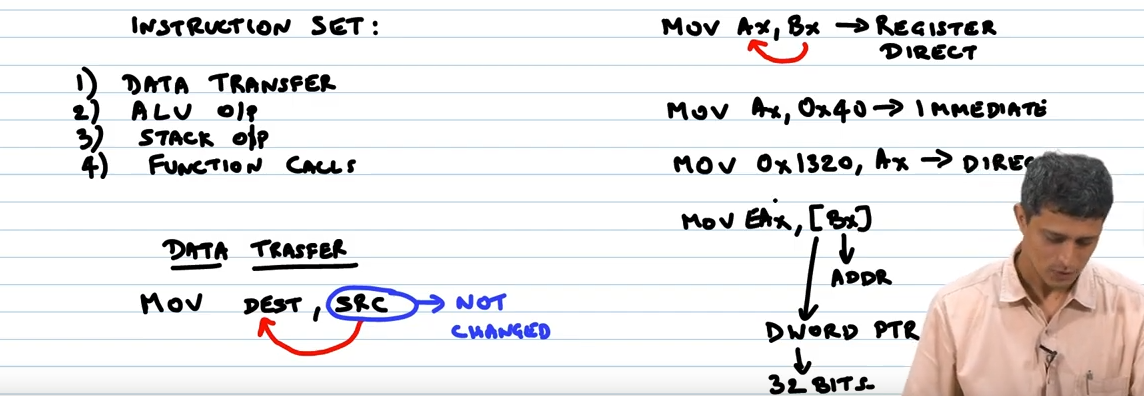 INSTRUCTION SET:
1) DATA TRANSFER
2) ALU O/P
3) STACK O/P
4) FUNCTION CALLS
DATA TRASFER
MOV DEST, SRC → NOT
CHANGED
MOV Ax, Bx → REGISTER
DIRECT
MOV Ax, 0x40 → IMMEDIATE
MOV 0x1320, Ax → DIREC
MOV EAx, [Bx]
ADDR
DWORD PTR
32 BITS